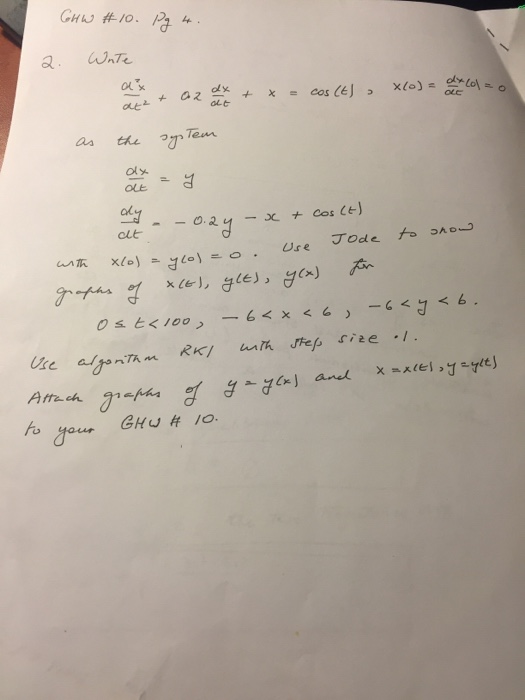 GHW #10. Pg 4.
2. Write
d²x/dt² + 0.2 dx/dt + x = cos(t), x(0) = dx/dt(0) = 0
as the system
dx/dt = y
dy/dt = -0.2y - x + cos(t)
with x(0) = y(0) = 0. Use JOde to show
graphs of x(t), y(t), y(x) for
0 ≤ t < 100, -6 < x < 6, -6 < y < 6.
Use algorithm RK1 with step size .1.
Attach graphs of y = y(x) and x = x(t), y = y(t)
to your GHW # 10.